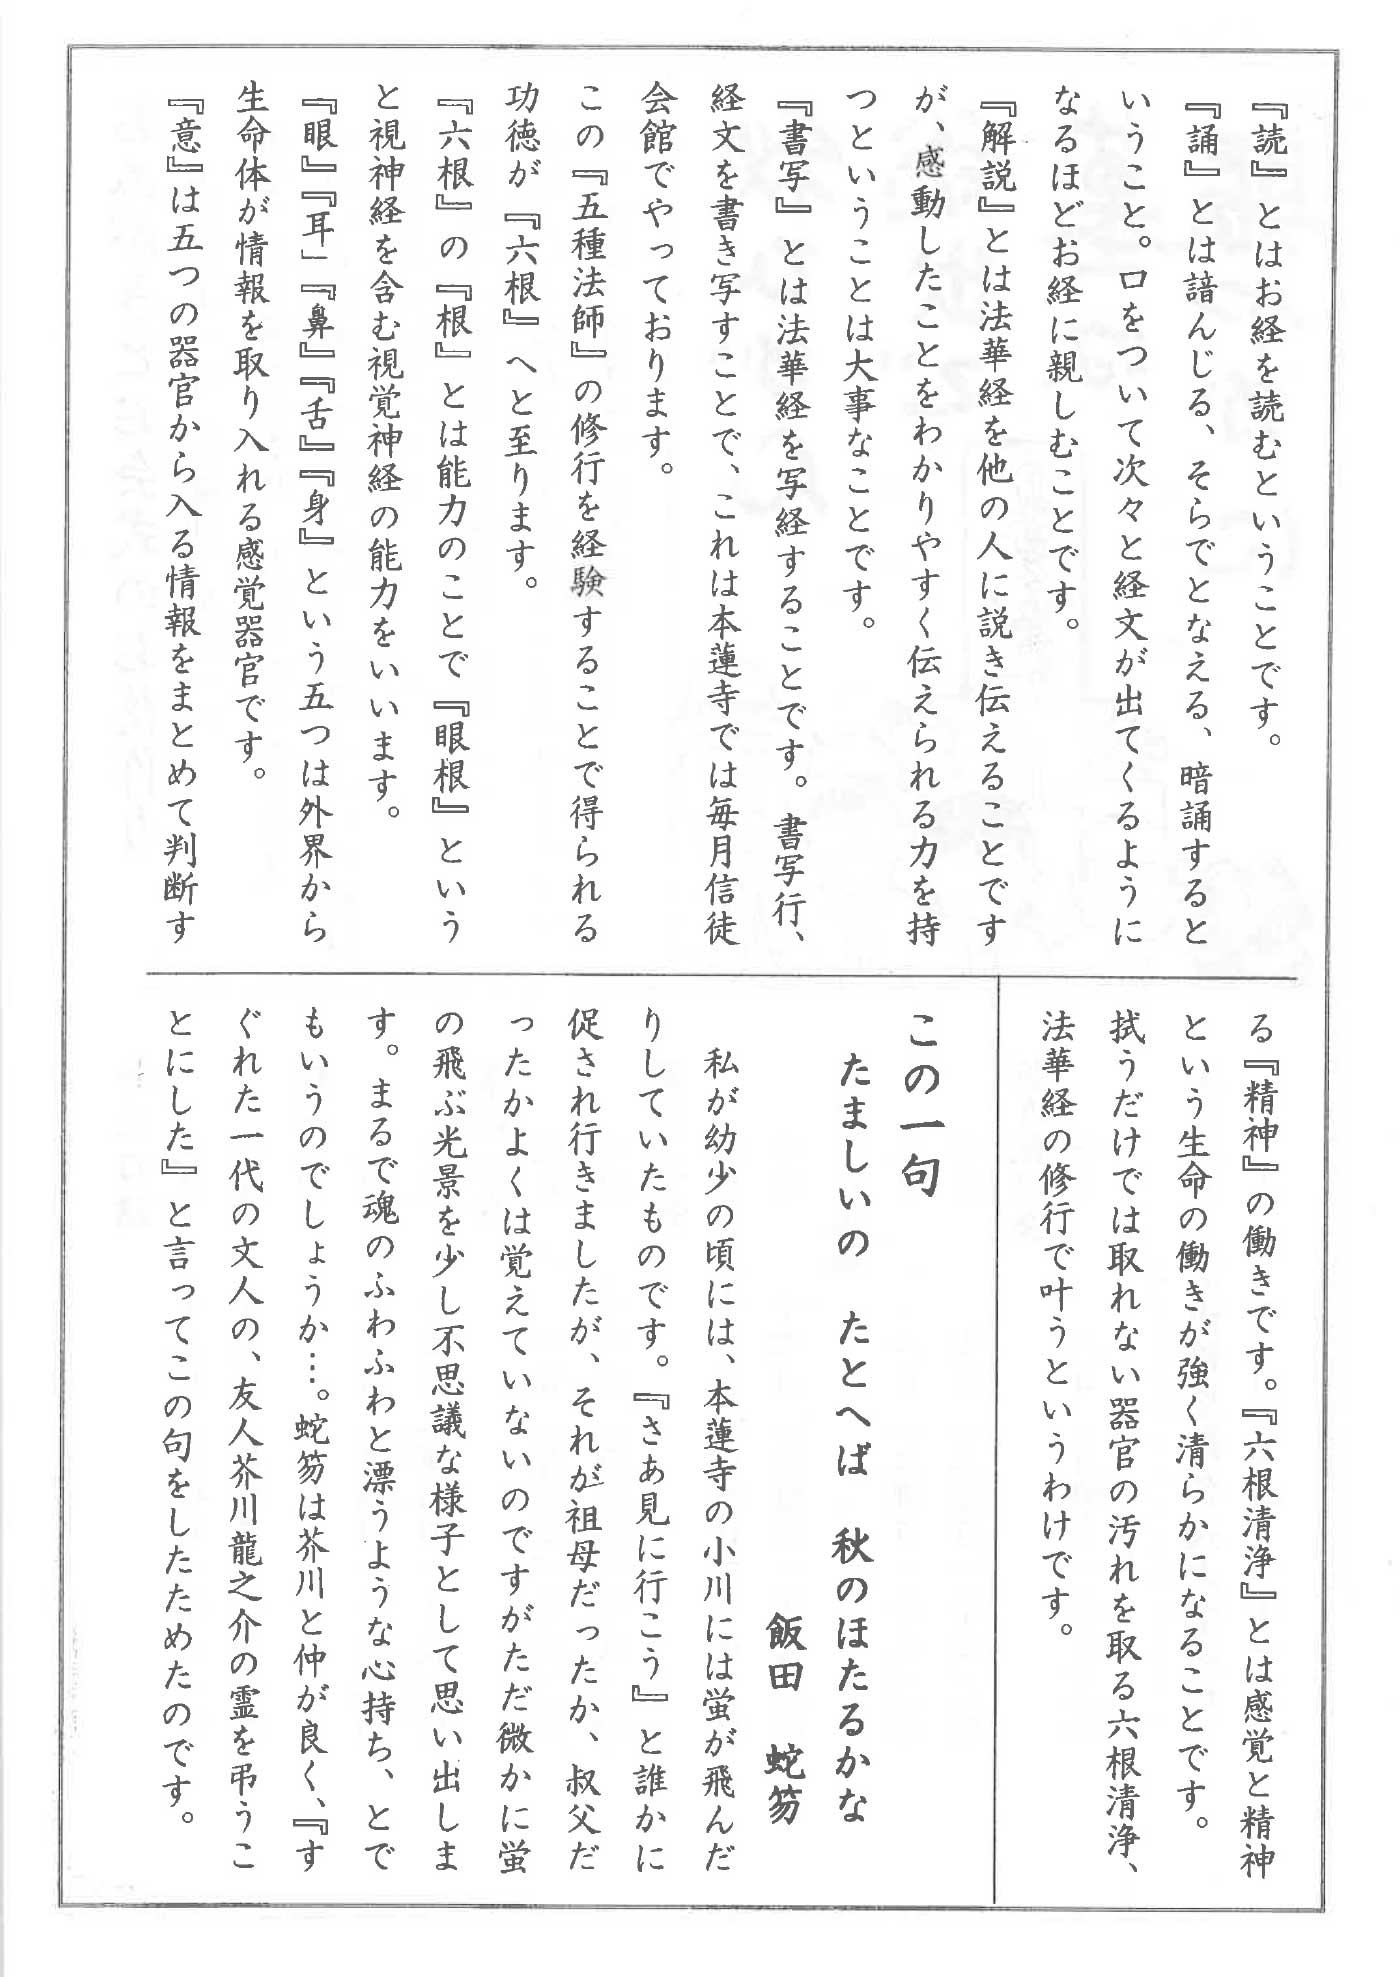 『読』とはお経を読むということです。
『誦』とは諳んじる、そらでとなえる、暗誦すると
いうこと。口をついて次々と経文が出てくるように
なるほどお経に親しむことです。
『解説』とは法華経を他の人に説き伝えることです
が、感動したことをわかりやすく伝えられる力を持
つということは大事なことです。
『書写』とは法華経を写経することです。書写行、
経文を書き写すことで、これは本蓮寺では毎月信徒
会館でやっております。
この『五種法師』の修行を経験することで得られる
功徳が『六根』へと至ります。
『六根』の『根』とは能力のことで『眼根』という
と視神経を含む視覚神経の能力をいいます。
『眼』『耳」『鼻』『舌』『身』という五つは外界から
生命体が情報を取り入れる感覚器官です。
『意』は五つの器官から入る情報をまとめて判断す
る『精神』の働きです。『六根清浄』とは感覚と精神
という生命の働きが強く清らかになることです。
拭うだけでは取れない器官の汚れを取る六根清浄、
法華経の修行で叶うというわけです。
この一句
たましいの たとへば 秋のほたるかな
飯田 蛇笏
私が幼少の頃には、本蓮寺の小川には蛍が飛んだ
りしていたものです。『さあ見に行こう』と誰かに
促され行きましたが、それが祖母だったか、叔父だ
ったかよくは覚えていないのですがただ微かに蛍
の飛ぶ光景を少し不思議な様子として思い出しま
す。まるで魂のふわふわと漂うような心持ち、とで
もいうのでしょうか…。蛇笏は芥川と仲が良く、『す
ぐれた一代の文人の、友人芥川龍之介の霊を弔うこ
とにした』と言ってこの句をしたためたのです。